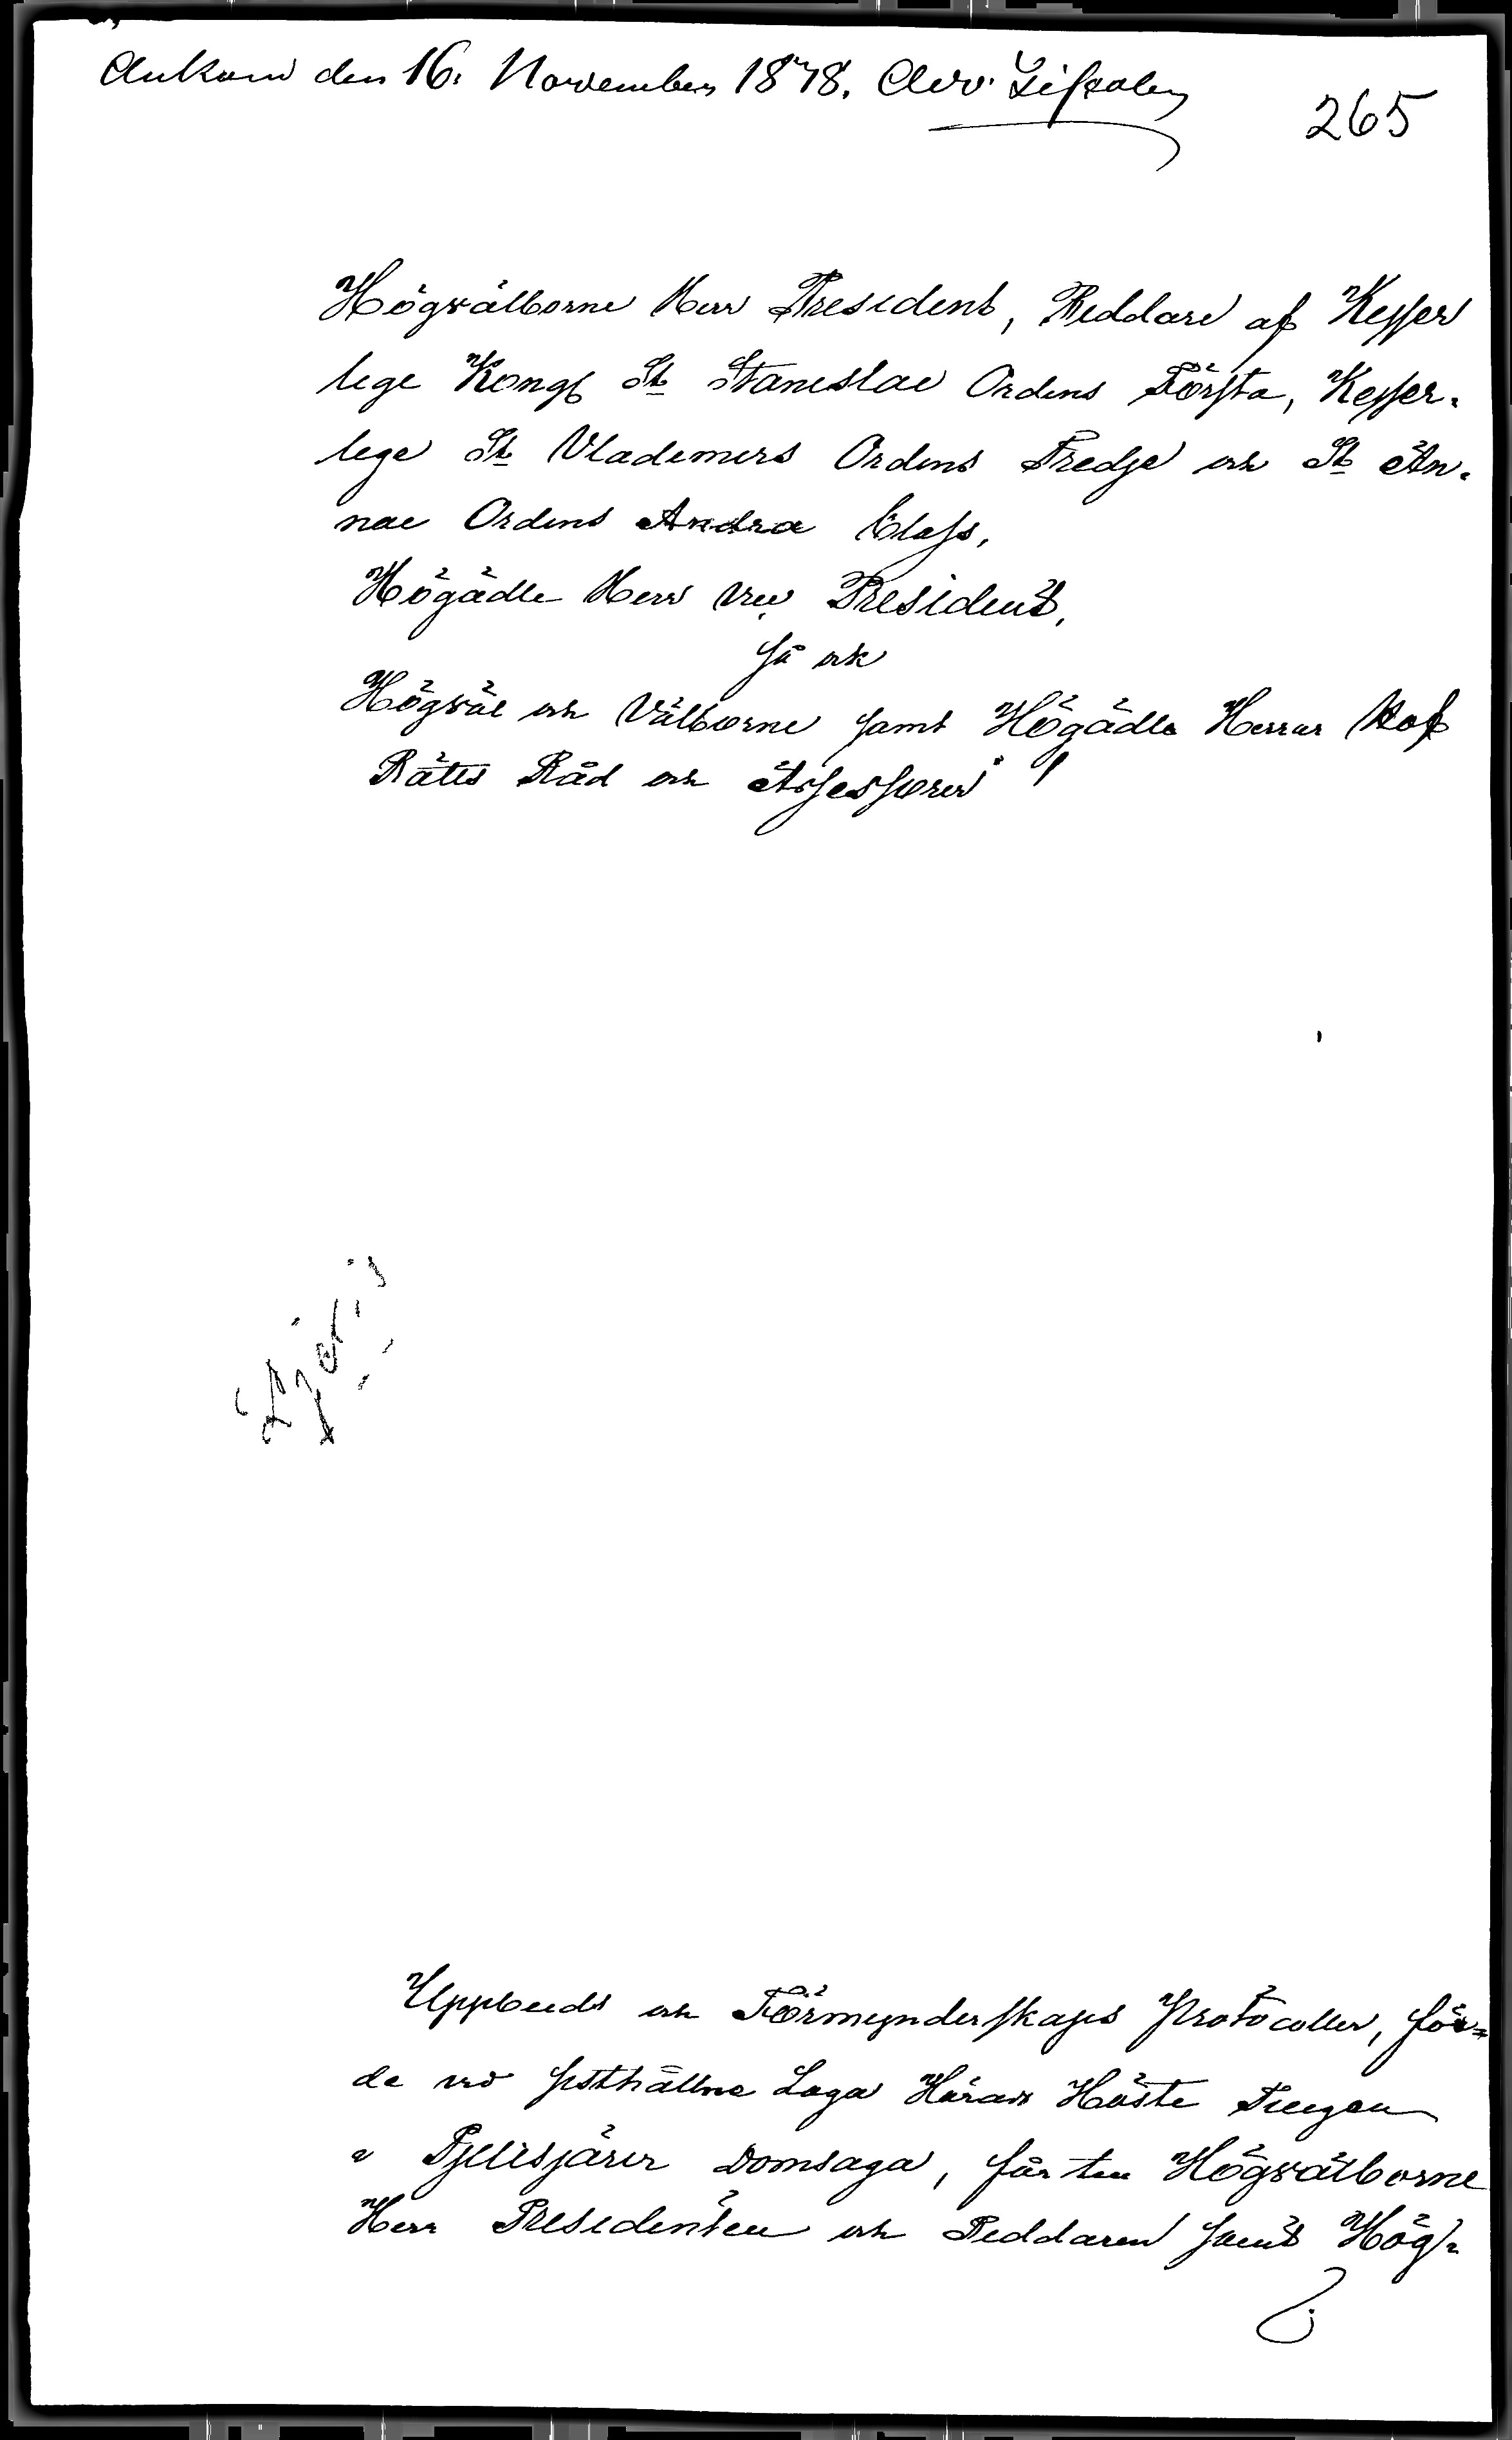 Ankom den 16. November 1848.
265
Högvälborne Herr President, Riddare af Kejser
lige Kongl St Stanislai Ordens Första, Kejser-
lige St Vladimirs Ordens Tredje och St An-
nae Ordens Andra Class,
Högädle Herr Vice President,
Så ock
Högväl och Välborne samt Högädle Herrar Hof
Rätts Råd och Assessorer!
Uppbuds och Förmynderskaps Protocoller, för-
de vid sisthållne Laga Härads Höste Tingen
i Pjelisjärvi Domsaga, får Högvälborne
Herr Presidenten och Riddaren samt Hög-